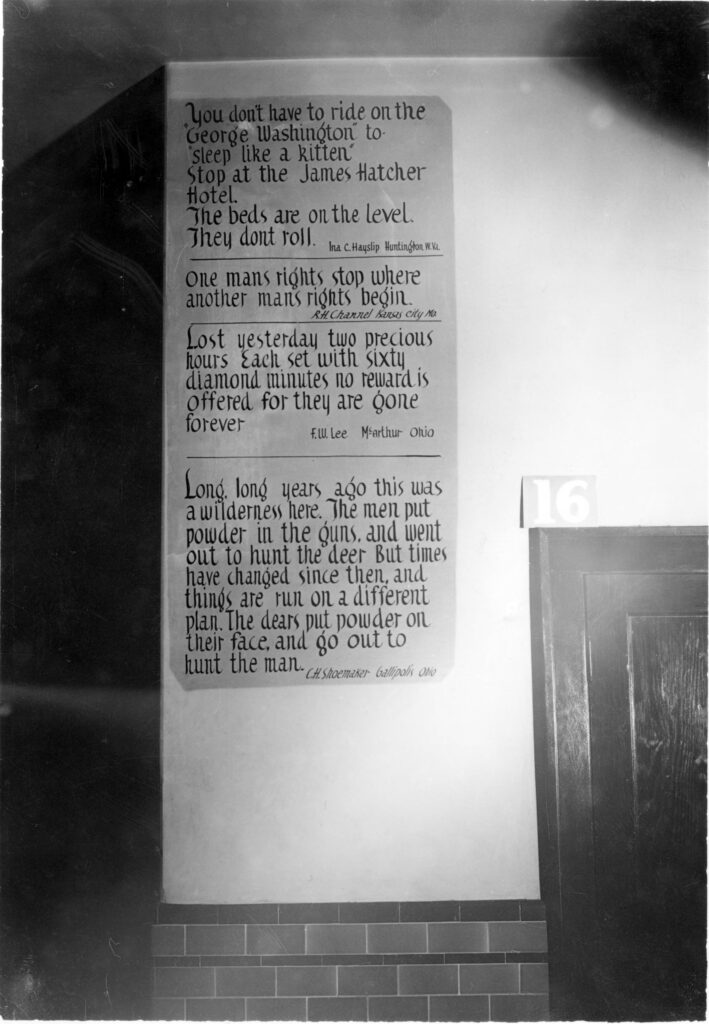 You don't have to ride on the
"George Washington" to
"sleep like a kitten"
Stop at the James Hatcher
Hotel.
The beds are on the level.
They dont roll.
Ina C. Hayslip Huntington, W. Va.
One mans rights stop where
another man's rights begin.
R.H. Channel Kansas City Mo.
Lost yesterday two precious
hours Each set with sixty
diamond minutes no reward is
offered for they are gone
forever
F.W. Lee McArthur Ohio
Long, long years ago this was
a wilderness here. The men put
powder in the guns, and went
out to hunt the deer But times
have changed since then, and
things are run on a different
plan. The dears put powder on
their face, and go out to
hunt the man.
C.H. Shoemaker Gallipolis Ohio
16